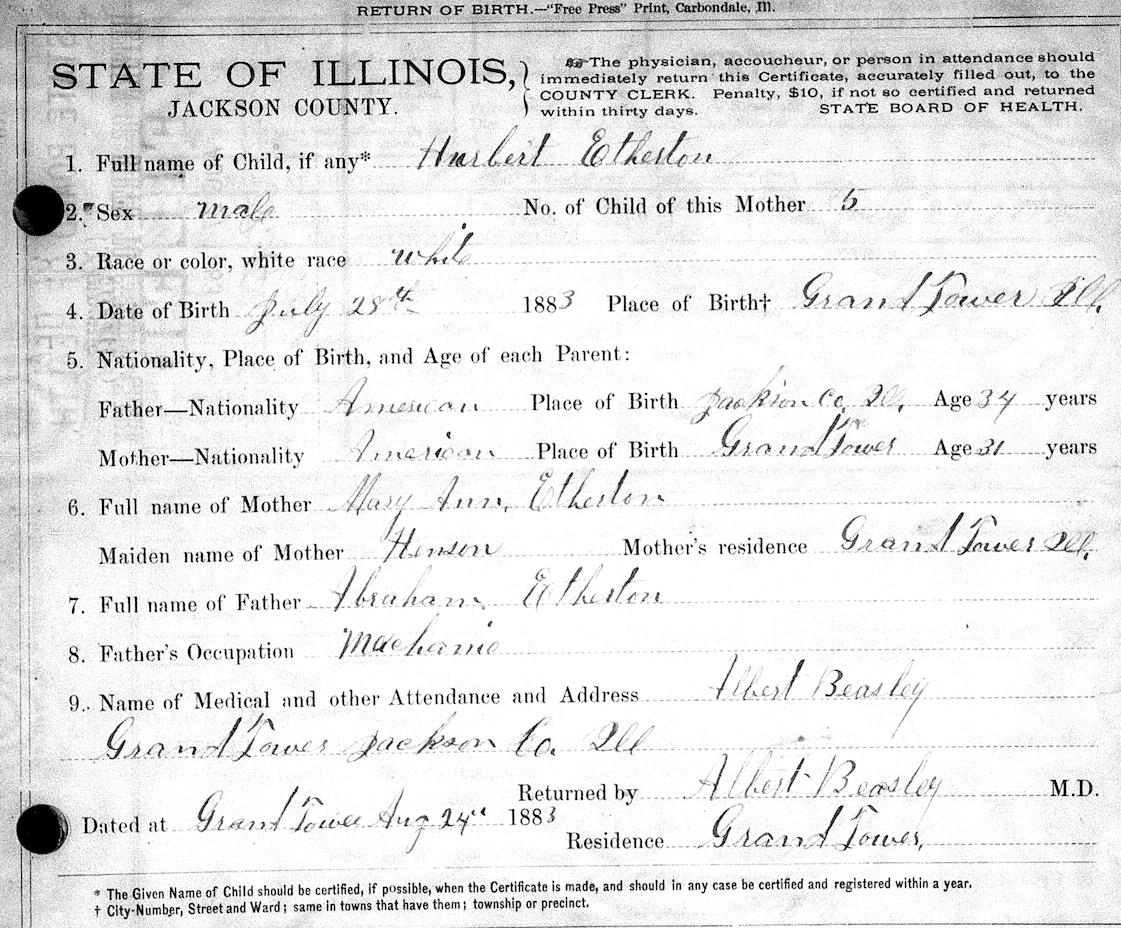 RETURN OF BIRTH.—"Free Press" Print, Carbondale, Ill.
STATE OF ILLINOIS,
JACKSON COUNTY.
The physician, accoucheur, or person in attendance should
immediately return this Certificate, accurately filled out, to the
COUNTY CLERK. Penalty, $10, if not so certified and returned
within thirty days. STATE BOARD OF HEALTH.
1. Full name of Child, if any* Hurbert Etherton
2. Sex male No. of Child of this Mother 5
3. Race or color, white race white
4. Date of Birth July 28th 1883 Place of Birth† Grand Tower Ill.
5. Nationality, Place of Birth, and Age of each Parent:
Father—Nationality American Place of Birth Jackson Co. Ill. Age 34 years
Mother—Nationality American Place of Birth Grand Tower Age 31 years
6. Full name of Mother Mary Ann, Etherton
Maiden name of Mother Henson Mother's residence Grand Tower Ill.
7. Full name of Father Abraham, Etherton
8. Father's Occupation Machanic
9. Name of Medical and other Attendance and Address Albert Beasley
Grand Tower Jackson Co. Ill
Returned by Albert Beasley M.D.
Dated at Grand Tower Aug 24th 1883
Residence Grand Tower,
* The Given Name of Child should be certified, if possible, when the Certificate is made, and should in any case be certified and registered within a year.
† City-Number, Street and Ward; same in towns that have them; township or precinct.